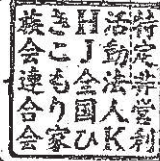 特定非営利
活動法人K
HJ全国ひ
きこもり家
族会連合会